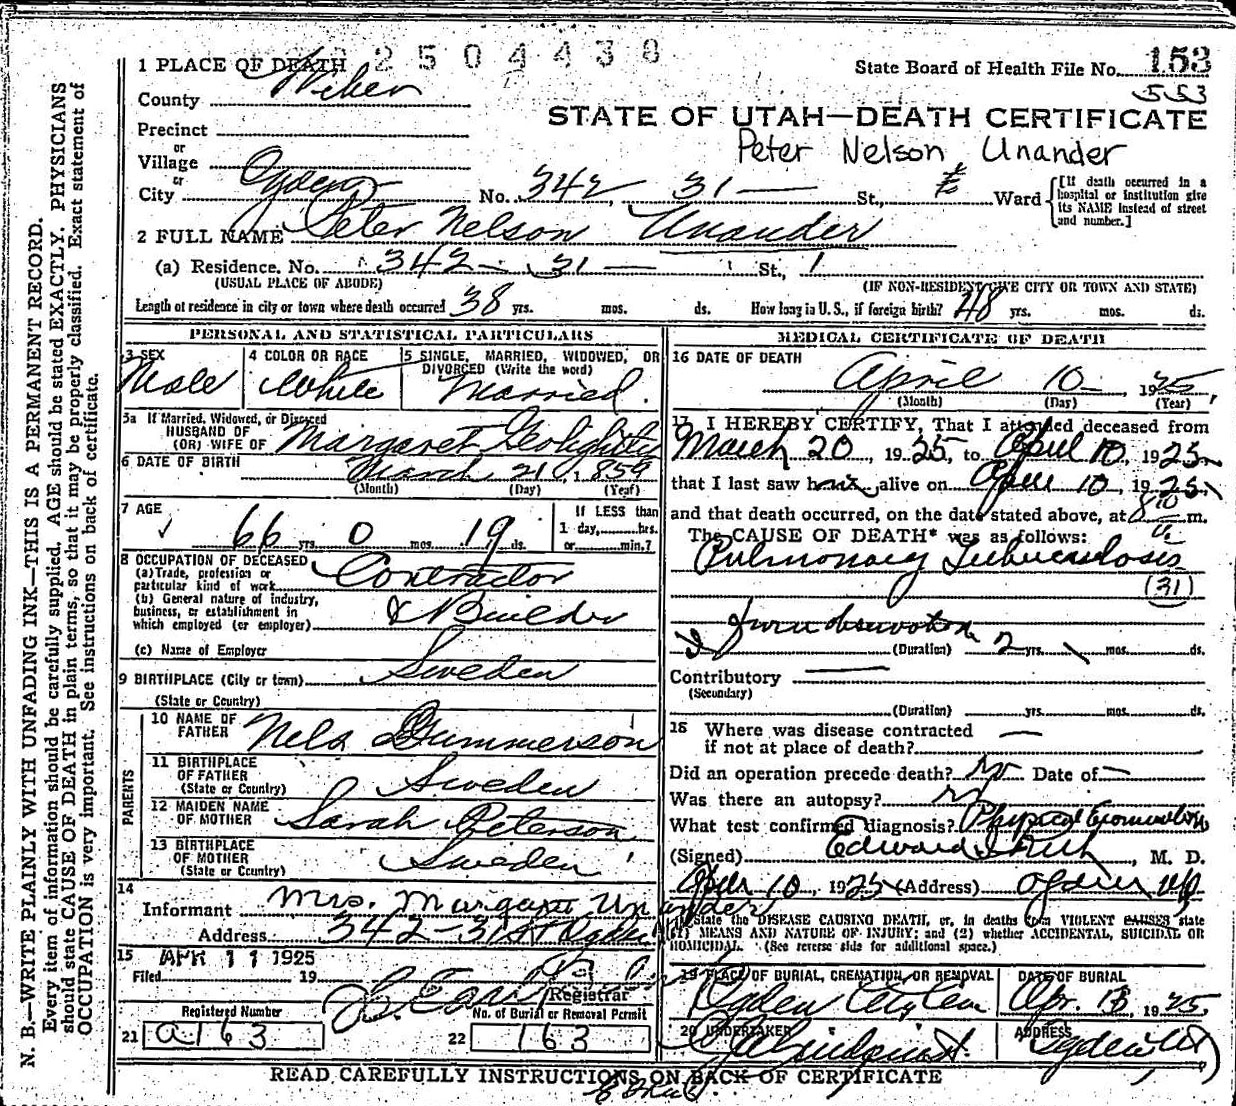 2504438
1 PLACE OF DEATH
State Board of Health File No. 153
553
County Weber
STATE OF UTAH—DEATH CERTIFICATE
Precinct
or
Village
Peter Nelson Unander
or
City Ogden No. 342, 31 — St., Ward
[If death occurred in a hospital or institution give its NAME instead of street and number.]
2 FULL NAME Peter Nelson Unander
(a) Residence. No. 342 — 31 — St., 1
(USUAL PLACE OF ABODE)
(IF NON-RESIDENT GIVE CITY OR TOWN AND STATE)
Length of residence in city or town where death occurred 38 yrs. mos. ds. How long in U.S., if foreign birth? 48 yrs. mos. ds.
PERSONAL AND STATISTICAL PARTICULARS
3 SEX
Male
4 COLOR OR RACE
White
5 SINGLE, MARRIED, WIDOWED, OR
DIVORCED (Write the word)
Married.
5a If Married, Widowed, or Divorced
HUSBAND OF
(OR) WIFE OF Margaret Golightly
6 DATE OF BIRTH March 21, 1859
(Month) (Day) (Year)
7 AGE
66 yrs. 0 mos. 19 ds.
If LESS than
1 day, hrs.
or min.?
8 OCCUPATION OF DECEASED
(a) Trade, profession or
particular kind of work Contractor
(b) General nature of industry,
business, or establishment in
which employed (or employer) & Builder
(c) Name of Employer
9 BIRTHPLACE (City or town) Sweden
(State or Country)
PARENTS
10 NAME OF
FATHER Nels Gummerson
11 BIRTHPLACE
OF FATHER
(State or Country) Sweden
12 MAIDEN NAME
OF MOTHER Sarah Peterson
13 BIRTHPLACE
OF MOTHER
(State or Country) Sweden
14
Informant Mrs. Margaret Unander
Address 342-31 St Ogden
15 APR 11 1925
Filed 19
Registrar
Registered Number
21 a163
No. of Burial or Removal Permit
22 163
MEDICAL CERTIFICATE OF DEATH
16 DATE OF DEATH
April 10, 1925,
(Month) (Day) (Year)
17 I HEREBY CERTIFY, That I attended deceased from
March 20, 1925, to April 10, 1925
that I last saw him alive on April 10, 1925
and that death occurred, on the date stated above, at 8 10 a m.
The CAUSE OF DEATH* was as follows:
Pulmonary Tuberculosis
(31)
observation
(Duration) 2 yrs. mos. ds.
Contributory —
(Secondary)
(Duration) yrs. mos. ds.
18 Where was disease contracted
if not at place of death? —
Did an operation precede death? No Date of —
Was there an autopsy? No
What test confirmed diagnosis? Physical Examination
(Signed) Edward I Rich, M. D.
April 10, 1925 (Address) Ogden Ut
*State the DISEASE CAUSING DEATH, or, in deaths from VIOLENT CAUSES state
(1) MEANS AND NATURE OF INJURY; and (2) whether ACCIDENTAL, SUICIDAL OR
HOMICIDAL. (See reverse side for additional space.)
19 PLACE OF BURIAL, CREMATION, OR REMOVAL
Ogden City Cem
DATE OF BURIAL
Apr. 13, 1925
20 UNDERTAKER
Lindquist
ADDRESS
Ogden Ut
READ CAREFULLY INSTRUCTIONS ON BACK OF CERTIFICATE
N. B.—WRITE PLAINLY WITH UNFADING INK—THIS IS A PERMANENT RECORD.
Every item of information should be carefully supplied. AGE should be stated EXACTLY. PHYSICIANS
should state CAUSE OF DEATH in plain terms, so that it may be properly classified. Exact statement of
OCCUPATION is very important. See instructions on back of certificate.